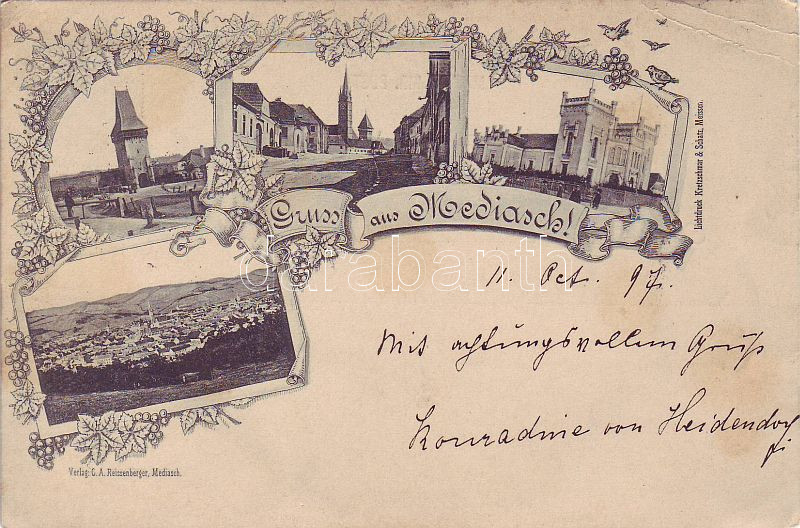 Gruss aus Mediasch!
Lichtdruck Kretzschmar & Schatz, Meissen.
darabanth
11. Oct. 97.
Mit achtungsvollem Gruß
von Heidendorf
Verlag: G. A. Reissenberger, Mediasch.